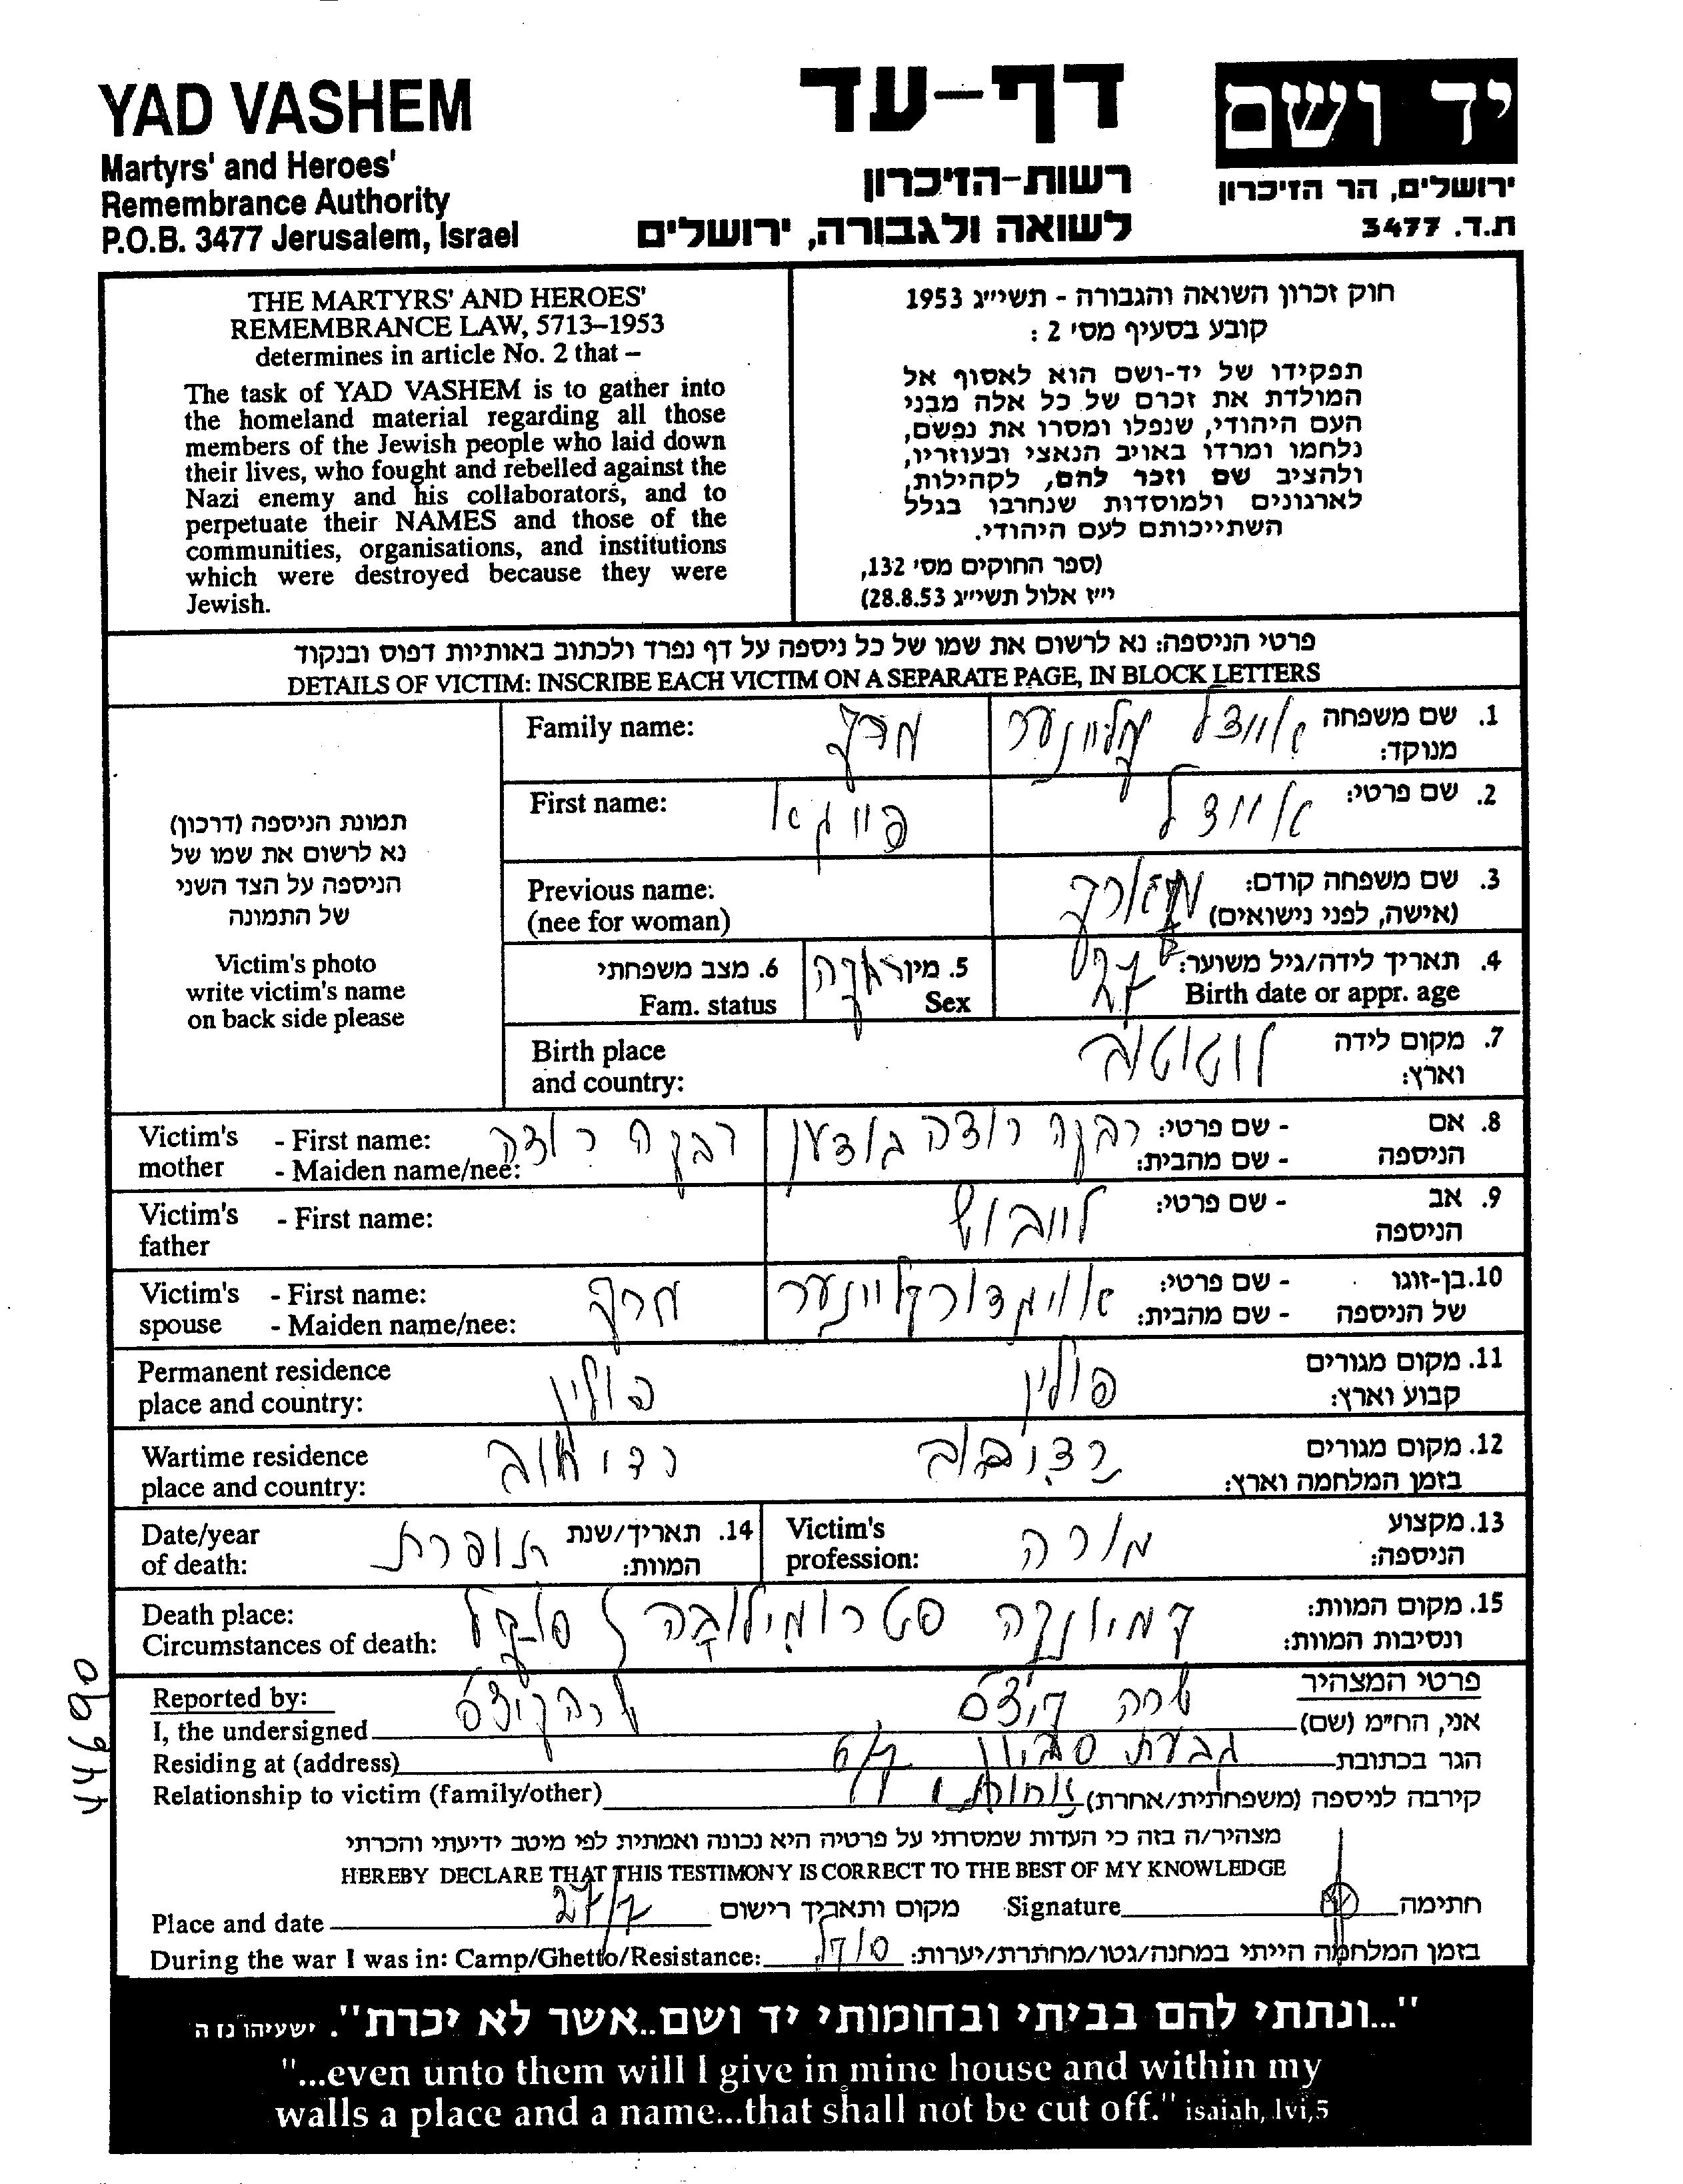 YAD VASHEM
Martyrs' and Heroes'
Remembrance Authority
P.O.B. 3477 Jerusalem, Israel
דף-עד
רשות-הזיכרון
לשואה ולגבורה, ירושלים
יד ושם
ירושלים, הר הזיכרון
ת.ד. 3477
THE MARTYRS' AND HEROES'
REMEMBRANCE LAW, 5713–1953
determines in article No. 2 that –
The task of YAD VASHEM is to gather into
the homeland material regarding all those
members of the Jewish people who laid down
their lives, who fought and rebelled against the
Nazi enemy and his collaborators, and to
perpetuate their NAMES and those of the
communities, organisations, and institutions
which were destroyed because they were
Jewish.
חוק זכרון השואה והגבורה - תשי״ג 1953
קובע בסעיף מס' 2 :
תפקידו של יד-ושם הוא לאסוף אל
המולדת את זכרם של כל אלה מבני
העם היהודי, שנפלו ומסרו את נפשם,
נלחמו ומרדו באויב הנאצי ובעוזריו,
ולהציב שם וזכר להם, לקהילות,
לארגונים ולמוסדות שנחרבו בגלל
השתייכותם לעם היהודי.
(ספר החוקים מס' 132,
י״ז אלול תשי״ג 28.8.53)
פרטי הניספה: נא לרשום את שמו של כל ניספה על דף נפרד ולכתוב באותיות דפוס ובנקוד
DETAILS OF VICTIM: INSCRIBE EACH VICTIM ON A SEPARATE PAGE, IN BLOCK LETTERS
תמונת הניספה (דרכון)
נא לרשום את שמו של
הניספה על הצד השני
של התמונה
Victim's photo
write victim's name
on back side please
1. שם משפחה
מנוקד:
Family name:
2. שם פרטי:
First name:
3. שם משפחה קודם:
(אישה, לפני נישואים)
Previous name:
(nee for woman)
4. תאריך לידה/גיל משוער: 27
Birth date or appr. age
5. מין
Sex
6. מצב משפחתי
Fam. status
7. מקום לידה
וארץ:
Birth place
and country:
8. אם
הניספה
- שם פרטי: רבקה רוצה
- שם מהבית:
Victim's
mother
- First name: רבקה רוצה
- Maiden name/nee:
9. אב
הניספה
- שם פרטי: לייבוש
Victim's
father
- First name:
10. בן-זוגו
של הניספה
- שם פרטי:
- שם מהבית:
Victim's
spouse
- First name:
- Maiden name/nee:
11. מקום מגורים
קבוע וארץ: פולין
Permanent residence
place and country: פולין
12. מקום מגורים
בזמן המלחמה וארץ:
Wartime residence
place and country:
13. מקצוע
הניספה: מורה
Victim's
profession:
14. תאריך/שנת
המוות: תופרת
Date/year
of death:
15. מקום המוות:
ונסיבות המוות: קמיונקה סטרומילובה סוקל
Death place:
Circumstances of death:
פרטי המצהיר
Reported by:
אני, הח״מ (שם) שרה
I, the undersigned
הגר בכתובת גבעת
Residing at (address)
קירבה לניספה (משפחתית/אחרת) אחות
Relationship to victim (family/other)
מצהיר/ה בזה כי העדות שמסרתי על פרטיה היא נכונה ואמתית לפי מיטב ידיעתי והכרתי
HEREBY DECLARE THAT THIS TESTIMONY IS CORRECT TO THE BEST OF MY KNOWLEDGE
Place and date 27/7 מקום ותאריך רישום Signature חתימה
During the war I was in: Camp/Ghetto/Resistance: סוקל בזמן המלחמה הייתי במחנה/גטו/מחתרת/יערות:
44690
"...ונתתי להם בביתי ובחומותי יד ושם..אשר לא יכרת". ישעיהו נו ה
"...even unto them will I give in mine house and within my
walls a place and a name...that shall not be cut off." isaiah, lvi,5